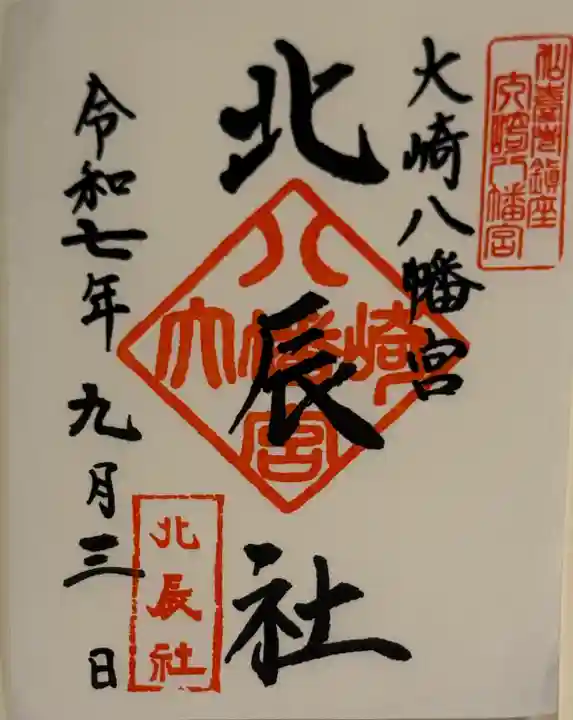 仙臺市鎮座
大崎八幡宮
大崎八幡宮
北辰社
八
大幡崎
宮
令和七年九月三日
北辰社